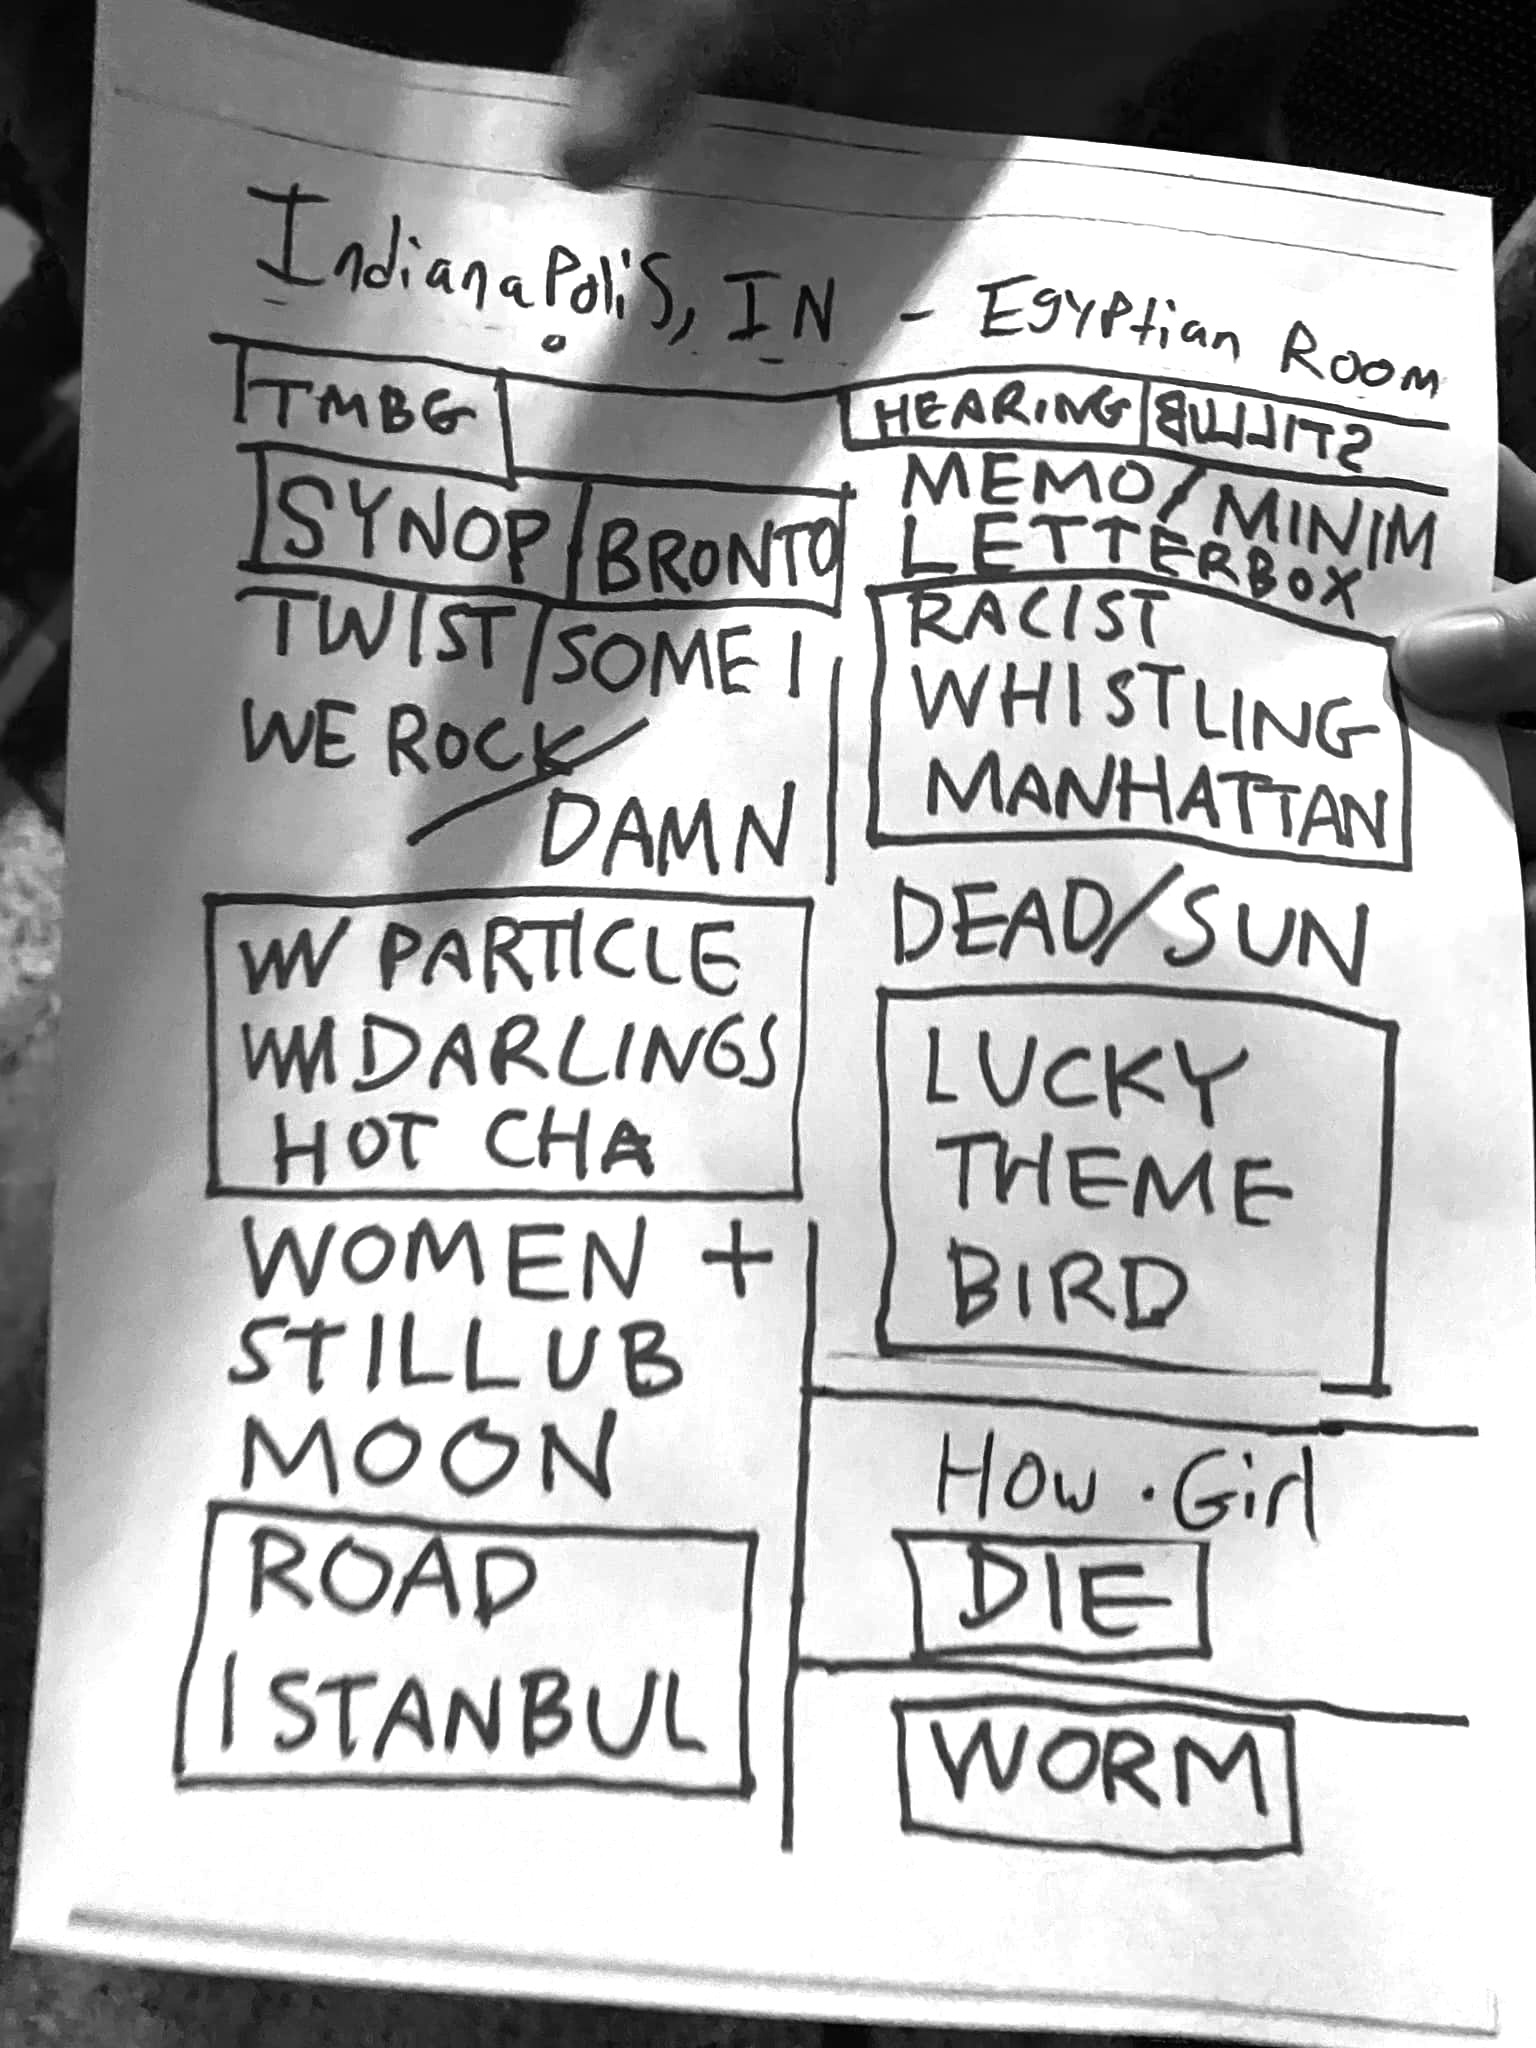 IndianaPolis, IN - Egyptian Room
TMBG
SYNOP / BRONTO
TWIST / SOME 1
WE ROCK /
DAMN
W/ PARTICLE
DARLINGS
HOT CHA
WOMEN +
STILLUB
MOON
ROAD
ISTANBUL
HEARING | STILLUB
MEMO / MINIM
LETTERBOX
RACIST
WHISTLING
MANHATTAN
DEAD / SUN
LUCKY
THEME
BIRD
How . Girl
DIE
WORM